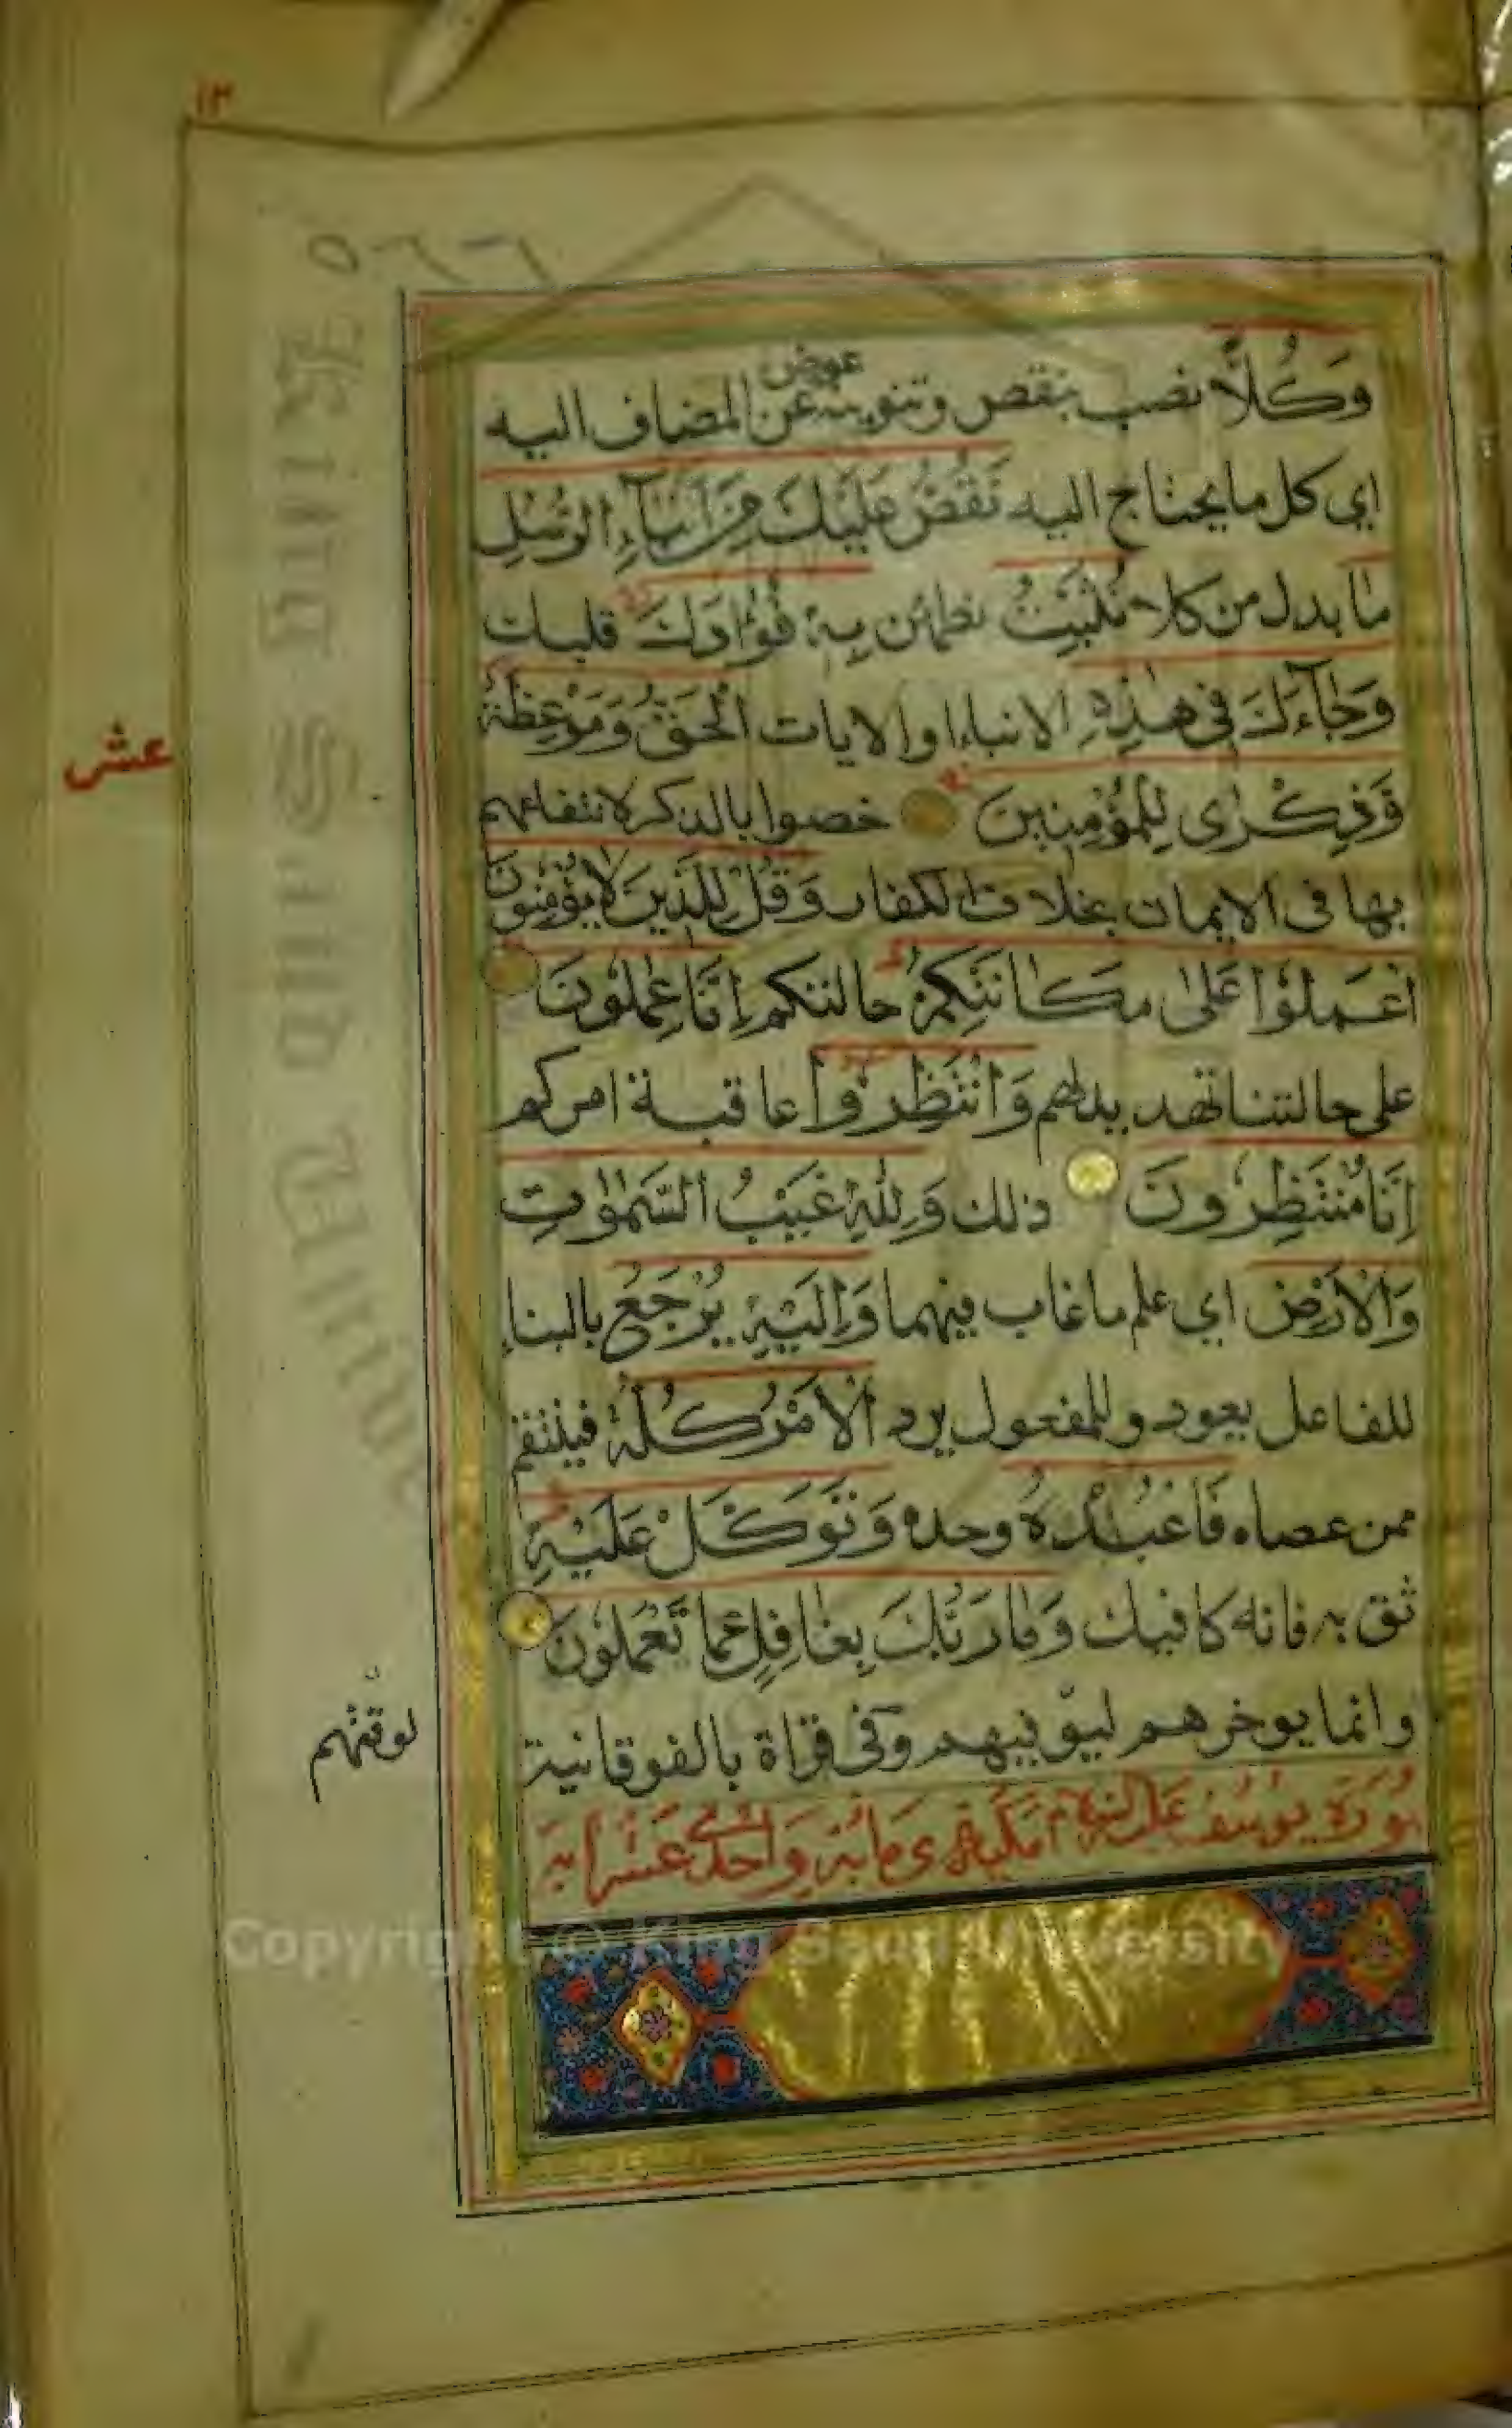 ١٣
وَكُلًّا نصب بنقص وتنوينه عوض عن المضاف اليه
اي كل ما يحتاج اليه نَقُصُّ عَلَيْكَ مِنْ اَنْبَاۤءِ الرُّسُلِ
مَا بدل من كلا نُثَبِّتُ نطمئن بِهٖ فُؤَادَكَ قلبك
وَجَاۤءَكَ فِي هٰذِهِ الانباء او الايات الْحَقُّ وَمَوْعِظَةٌ
وَذِكْرٰى لِلْمُؤْمِنِينَ خصوا بالذكر لانتفاعهم
بها فى الايمان بخلاف الكفار وَقُلْ لِلَّذِينَ لَا يُؤْمِنُونَ
اعْمَلُوا عَلٰى مَكَانَتِكُمْ حالتكم اِنَّا عٰمِلُونَ
على حالتنا تهديد لهم وَانْتَظِرُوا عاقبة امركم
اِنَّا مُنْتَظِرُونَ ذلك وَلِلّٰهِ غَيْبُ السَّمٰوٰتِ
وَالْاَرْضِ اي علم ما غاب فيهما وَاِلَيْهِ يُرْجَعُ بالبناء
للفاعل يعود وللمفعول يرد الْاَمْرُ كُلُّهُ فينتقم
ممن عصاه فَاعْبُدْهُ وحده وَتَوَكَّلْ عَلَيْهِ
ثق به فانه كافيك وَمَا رَبُّكَ بِغَافِلٍ عَمَّا تَعْمَلُونَ
وانما يوخرهم ليوفيهم وفى قراة بالفوقانية
سُورَة يوسُف عَلَيْهِ السَّلام مَكّية وَهِىَ مائة وَاحدى عَشَر اية
عشر
لوقتهم
Copyright © King Saud University